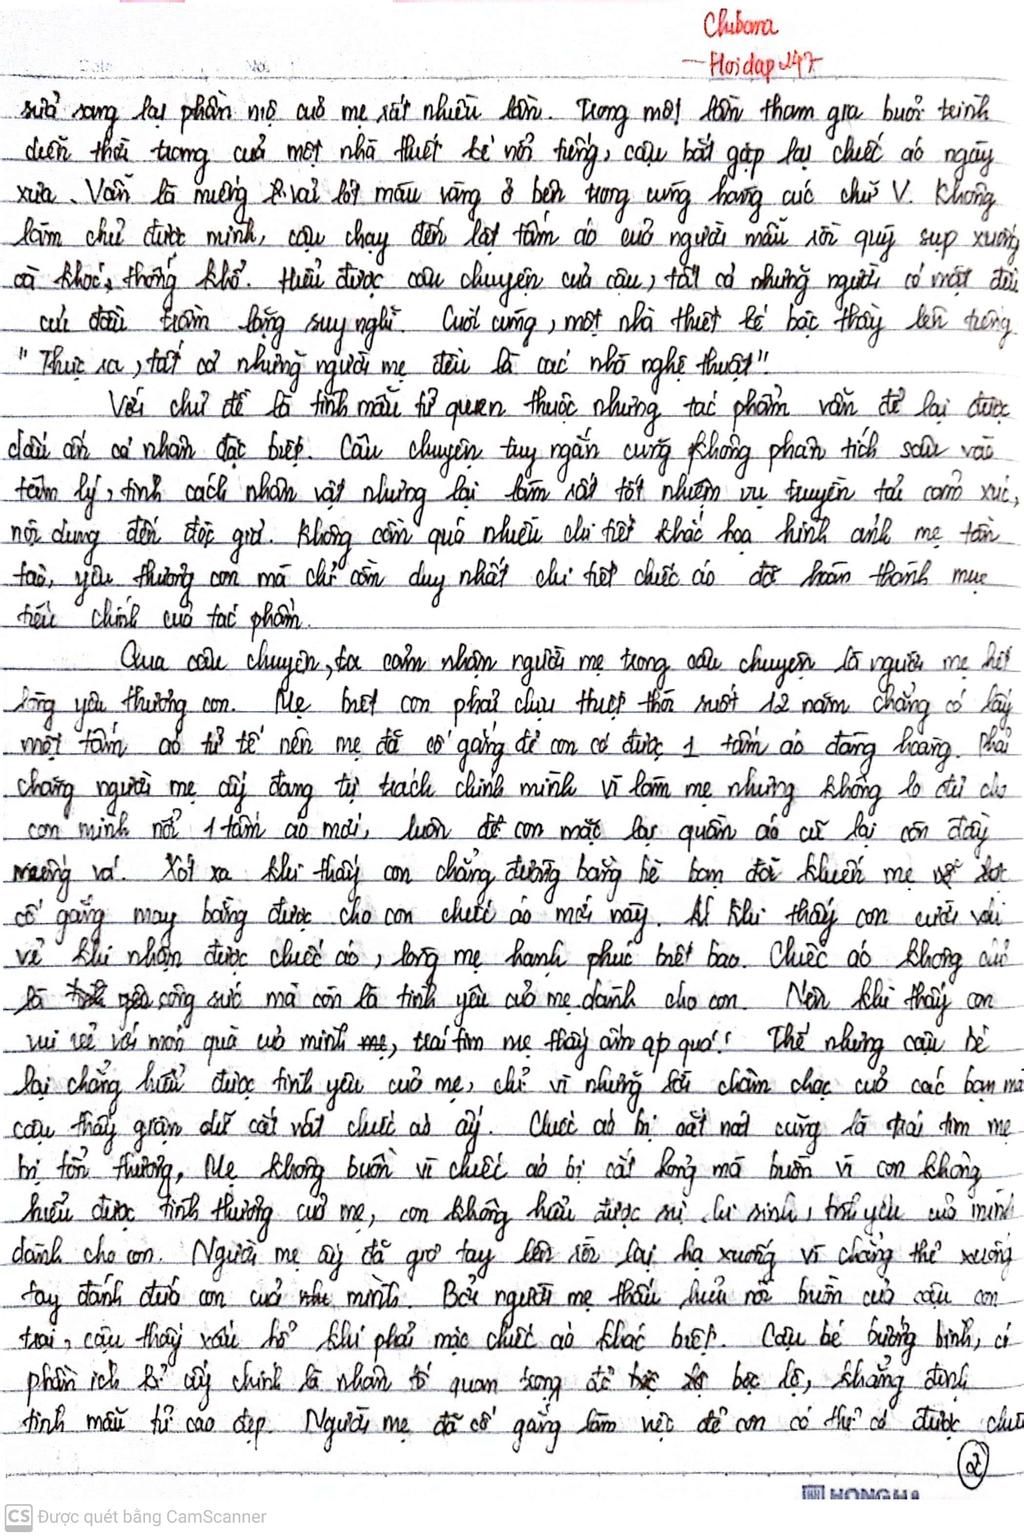 Chibora
- Hoidap247
sửa sang lại phần mộ của mẹ rất nhiều lần. Trong một lần tham gia buổi trình
diễn thời trang của một nhà thiết kế nổi tiếng, cậu bắt gặp lại chiếc áo ngày
xưa. Vẫn là miếng vải lót màu vàng ở bên trong cùng hàng cúc chữ V. Không
làm chủ được mình, cậu chạy đến lật tấm áo của người mẫu rồi quỳ sụp xuống
oà khóc, thống khổ. Hiểu được câu chuyện của cậu, tất cả những người có mặt đều
cúi đầu trầm lặng suy nghĩ. Cuối cùng, một nhà thiết kế bậc thầy lên tiếng
"Thực ra, tất cả những người mẹ đều là các nhà nghệ thuật".
Với chủ đề là tình mẫu tử quen thuộc nhưng tác phẩm vẫn để lại được
dấu ấn cá nhân đặc biệt. Câu chuyện tuy ngắn cũng không phân tích sâu vào
tâm lý, tính cách nhân vật nhưng lại làm rất tốt nhiệm vụ truyền tải cảm xúc,
nội dung đến độc giả. Không cần quá nhiều chi tiết khắc họa hình ảnh mẹ tần
tảo, yêu thương con mà chỉ cần duy nhất chi tiết chiếc áo đã hoàn thành mục
tiêu chính của tác phẩm.
Qua câu chuyện, ta cảm nhận người mẹ trong câu chuyện là người mẹ hết
lòng yêu thương con. Mẹ biết con phải chịu thiệt thòi suốt 12 năm chẳng có lấy
một tấm áo tử tế nên mẹ đã cố gắng để con có được 1 tấm áo đàng hoàng. Phải
chăng người mẹ ấy đang tự trách chính mình vì làm mẹ nhưng không lo đủ cho
con mình nổi 1 tấm áo mới, luôn để con mặc lại quần áo cũ lại còn đầy
miếng vá. Xót xa khi thấy con chẳng đường bằng bè bạn đã khiến mẹ
cố gắng may bằng được cho con chiếc áo mới này. Ấy khi thấy con cười vui
vẻ khi nhận được chiếc áo, lòng mẹ hạnh phúc biết bao. Chiếc áo không chỉ
là công sức mà còn là tình yêu của mẹ dành cho con. Nên khi thấy con
vui vẻ với món quà của mình, trái tim mẹ thấy ấm áp quá! Thế nhưng cậu bé
lại chẳng hiểu được tình yêu của mẹ, chỉ vì những lời châm chọc của các bạn mà
cậu thấy giận dữ cắt nát chiếc áo ấy. Chiếc áo bị cắt nát cũng là trái tim mẹ
bị tổn thương, Mẹ không buồn vì chiếc áo bị cắt hỏng mà buồn vì con không
hiểu được tình thương của mẹ, con không hiểu được sự hi sinh, tình yêu của mình
dành cho con. Người mẹ ấy đã giơ tay lên rồi lại hạ xuống vì chẳng thể xuống
tay đánh đứa con của mình. Bởi người mẹ thấu hiểu nỗi buồn của cậu con
trai, cậu thấy xấu hổ khi phải mặc chiếc áo khác biệt. Cậu bé bướng bỉnh, có
phần ích kỉ ấy chính là nhân tố quan trọng để bộc lộ, khẳng định
tình mẫu tử cao đẹp. Người mẹ đã cố gắng làm việc để con có thể có được
2
HONG HA
CS Được quét bằng CamScanner